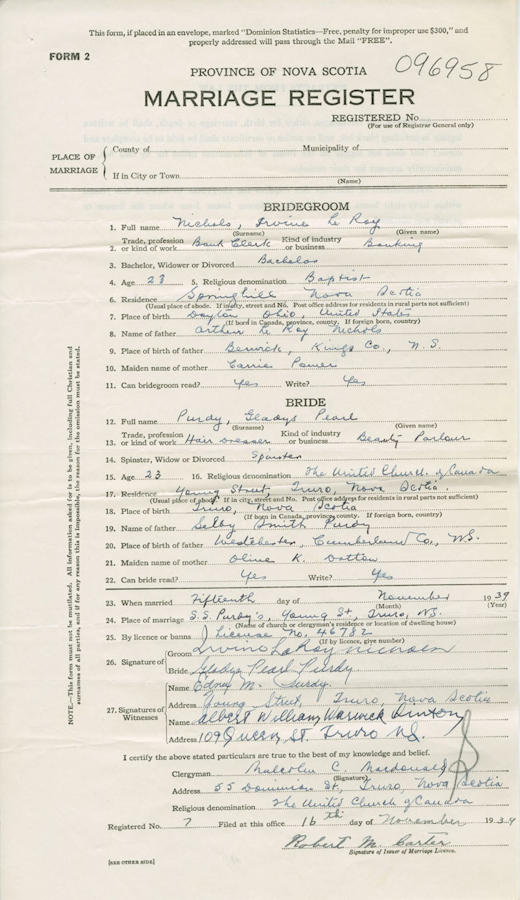 This form, if placed in an envelope, marked "Dominion Statistics—Free, penalty for improper use $300," and
properly addressed will pass through the Mail "FREE".
FORM 2
096958
PROVINCE OF NOVA SCOTIA
MARRIAGE REGISTER
REGISTERED No.
(For use of Registrar General only)
PLACE OF MARRIAGE
County of Municipality of
If in City or Town
(Name)
BRIDEGROOM
1. Full name Nichols, Irvine Le Roy
(Surname) (Given name)
2. Trade, profession or kind of work Bank Clerk Kind of industry or business Banking
3. Bachelor, Widower or Divorced Bachelor
4. Age 23 5. Religious denomination Baptist
6. Residence Springhill Nova Scotia
(Usual place of abode. If in city, street and No. Post office address for residents in rural parts not sufficient)
7. Place of birth Dayton Ohio, United States
(If born in Canada, province, county. If foreign born, country)
8. Name of father Arthur Le Roy Nichols
9. Place of birth of father Berwick, Kings Co., N.S.
10. Maiden name of mother Carrie
11. Can bridegroom read? Yes Write? Yes
BRIDE
12. Full name Purdy, Gladys Pearl
(Surname) (Given name)
13. Trade, profession or kind of work Hair Dresser Kind of industry or business Beauty Parlour
14. Spinster, Widow or Divorced Spinster
15. Age 23 16. Religious denomination The United Church of Canada
17. Residence Young Street, Truro, Nova Scotia
(Usual place of abode. If in city, street and No. Post office address for residents in rural parts not sufficient)
18. Place of birth Truro, Nova Scotia
(If born in Canada, province, county. If foreign born, country)
19. Name of father Selby Smith Purdy
20. Place of birth of father Westchester, Cumberland Co., N.S.
21. Maiden name of mother Olive K.
22. Can bride read? Yes Write? Yes
23. When married Fifteenth day of November 1939
(Month) (Year)
24. Place of marriage S.S. Purdy's, Young St, Truro, N.S.
(Name of church or clergyman's residence or location of dwelling house)
25. By licence or banns License No. 46782
(If by licence, give number)
26. Signature of
Groom Irvine LeRoy Nichols
Bride Gladys Pearl Purdy
27. Signatures of Witnesses
Name M. Purdy
Address Young Street, Truro Nova Scotia
Name Albert William Warwick
Address 109 Queen St. Truro N.S.
I certify the above stated particulars are true to the best of my knowledge and belief.
Clergyman Malcolm C. Macdonald
(Signature)
Address 55 Dominion St, Truro, Nova Scotia
Religious denomination The United Church of Canada
Registered No. 7 Filed at this office 16th day of November 1939
Robert M. Carter
Signature of Issuer of Marriage Licence.
[SEE OTHER SIDE]
NOTE—This form must not be mutilated. All information asked for is to be given, including full Christian and
surnames of all parties, and if for any reason this is impossible, the reason for the omission must be stated.